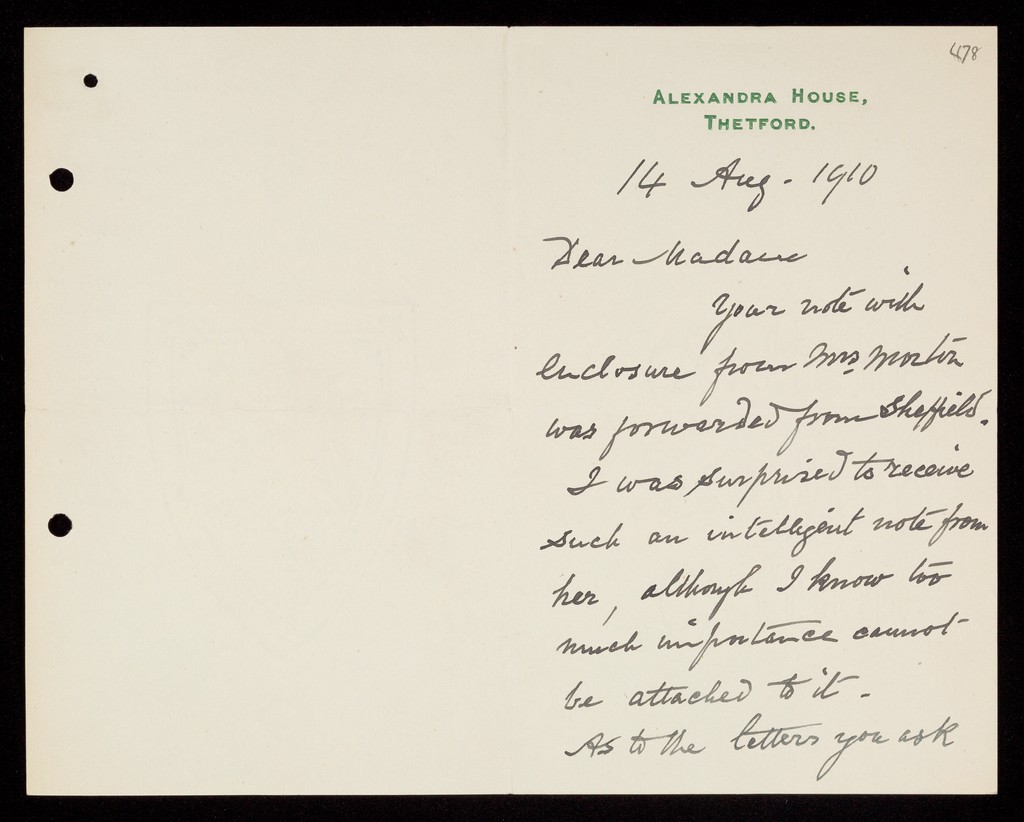 478
ALEXANDRA HOUSE,
THETFORD.
14 Aug. 1910
Dear Madam
Your note with
enclosure from Mrs Morton
was forwarded from Sheffield.
I was surprised to receive
such an intelligent note from
her, although I know too
much importance cannot
be attached to it.
As to the letters you ask